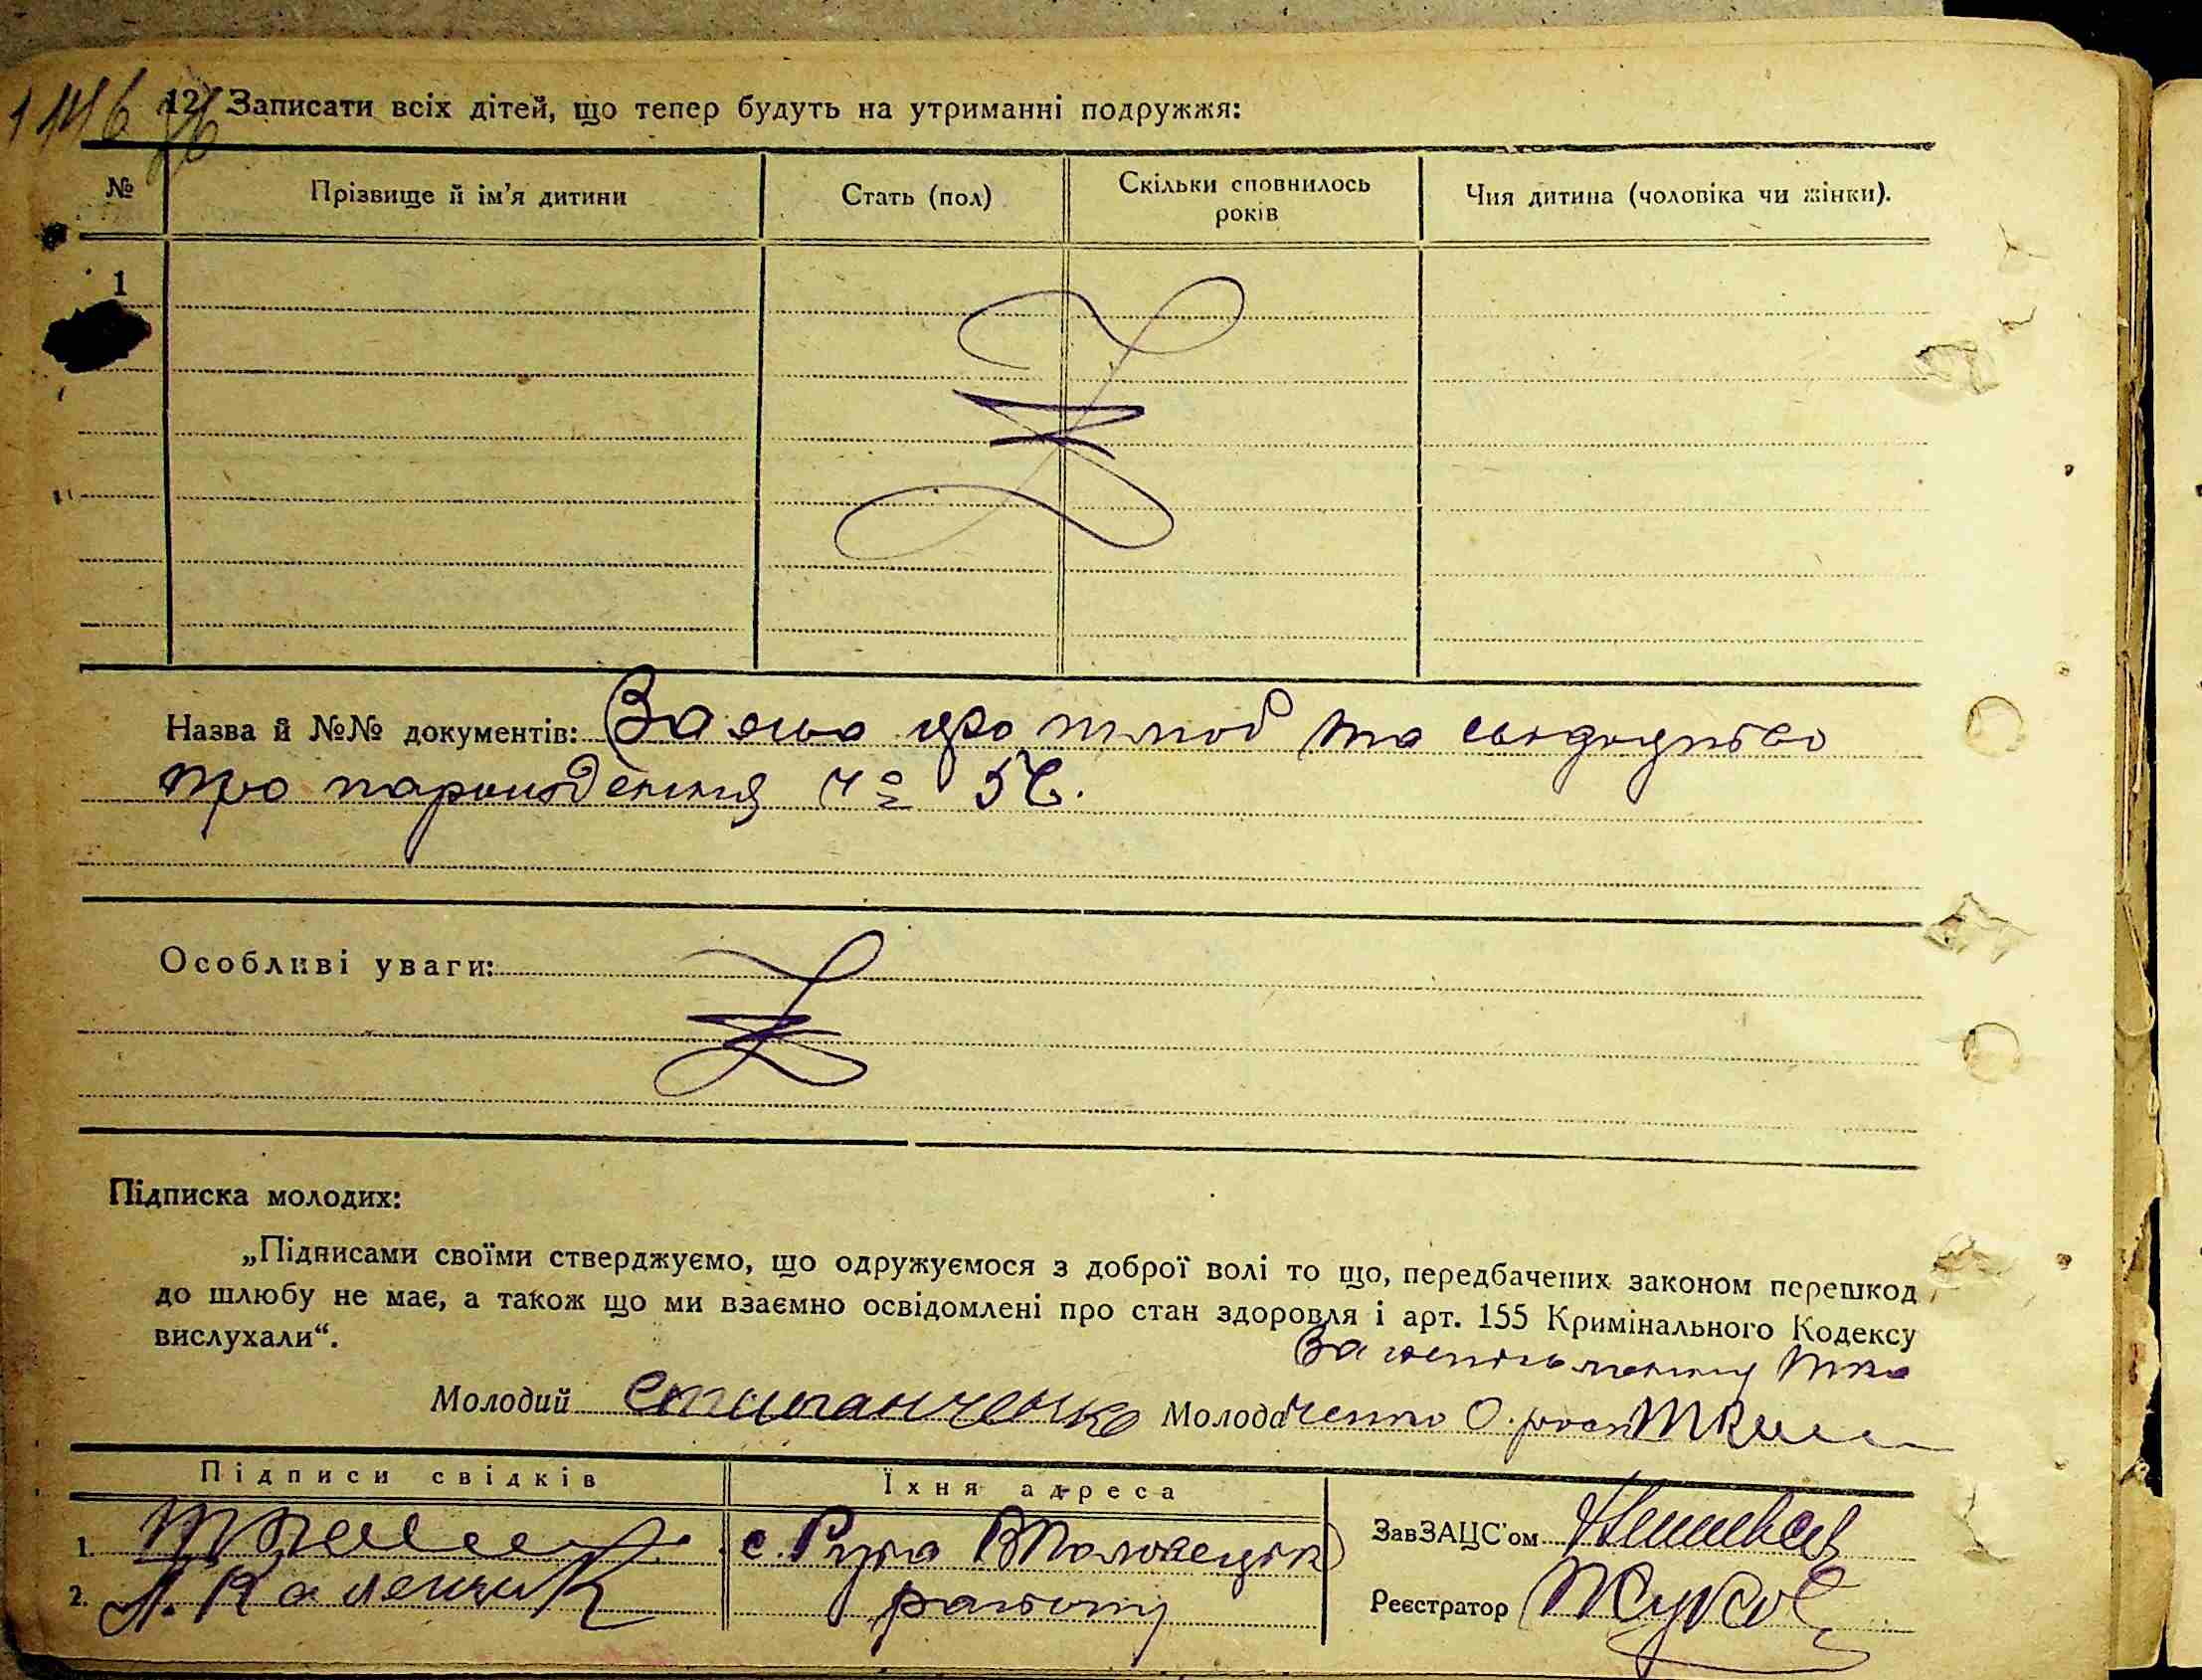 146
12. Записати всіх дітей, що тепер будуть на утриманні подружжя:
№ Прізвище й ім'я дитини Стать (пол) Скільки сповнилось років Чия дитина (чоловіка чи жінки).
1
Назва й №№ документів: Заяво про шлюб та свідоцтво
про народження № 56.
Особливі уваги:
Підписка молодих:
„Підписами своїми стверджуємо, що одружуємося з доброї волі то що, передбачених законом перешкод
до шлюбу не має, а також що ми взаємно освідомлені про стан здоровля і арт. 155 Кримінального Кодексу
вислухали“.
За неписьменну Тка
Молодий Молода ченко О. росп
Підписи свідків Їхня адреса
1. с. Рута ЗавЗАЦС'ом
2. району Реєстратор Жуков